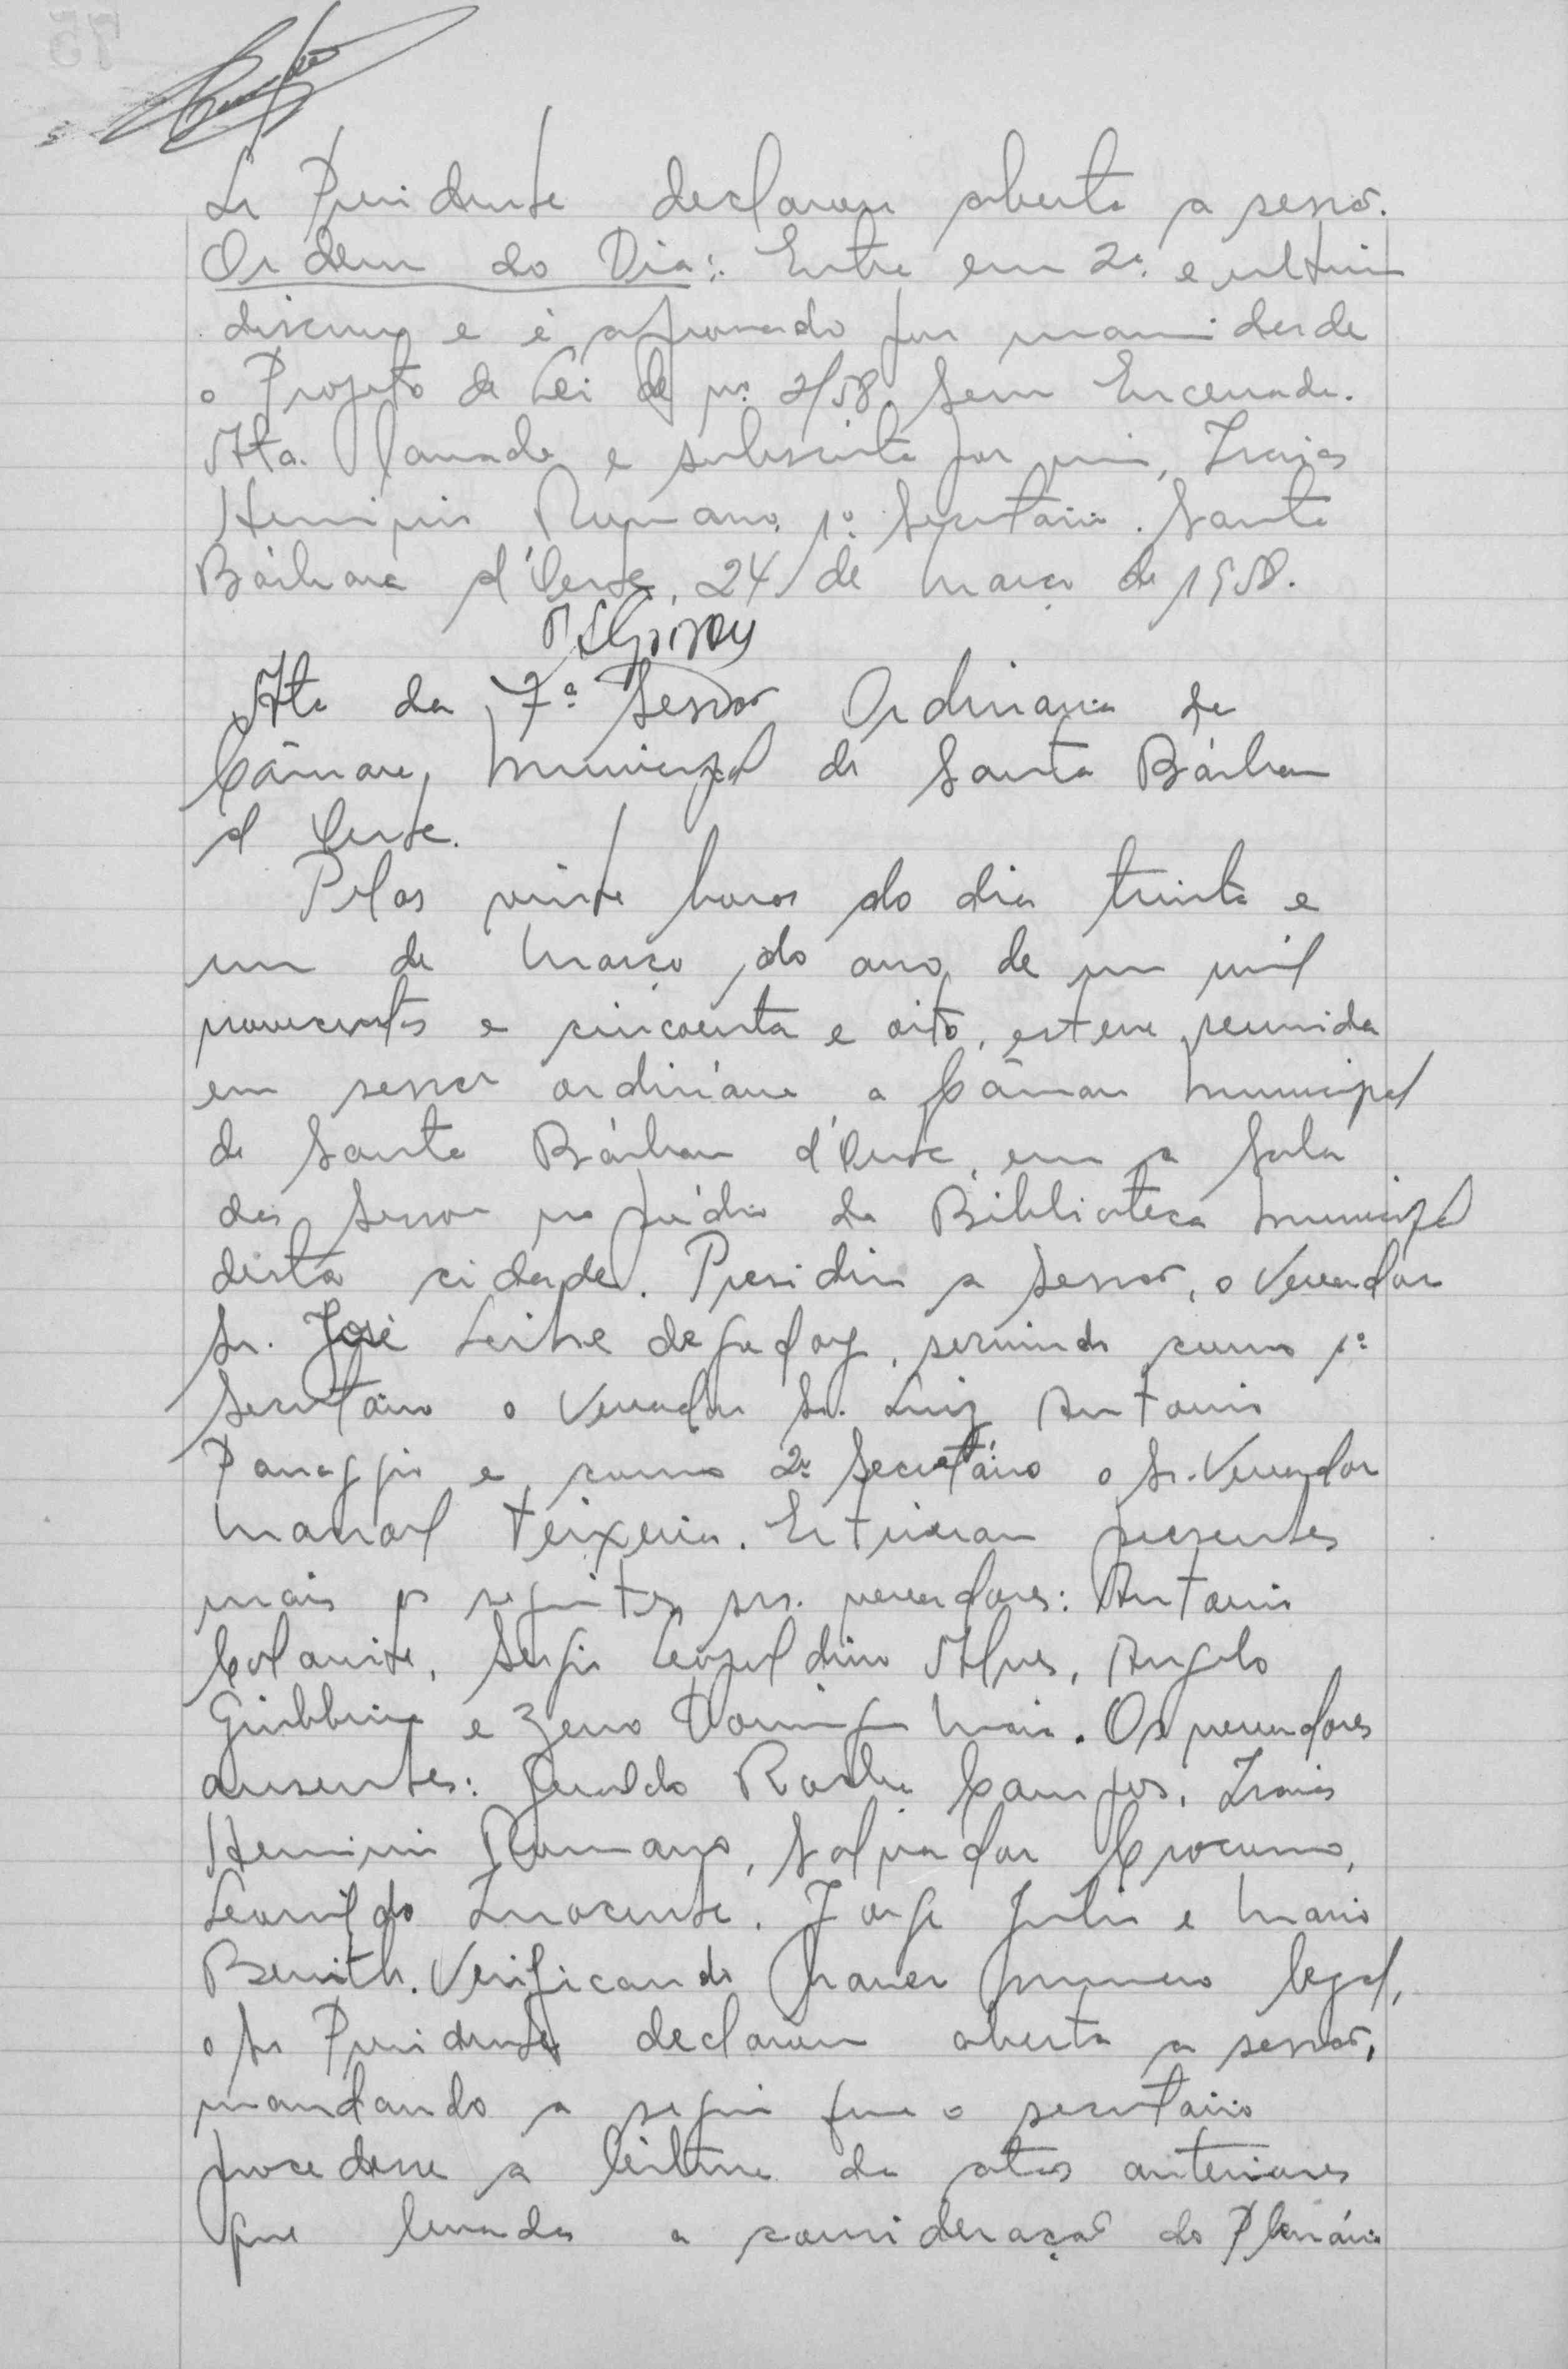 Sr Presidente declarou aberta a sessão.
Ordem do Dia: Entra em 2ª e ultima
discussão e é aprovado por unanimidade
o Projeto de Lei de nº 2/58. Sem Encerrada.
Ata lavrada e subscrita por mim, Izaias
Herminio Romano, 1º Secretario. Santa
Bárbara d'Oeste, 24 de Março de 1958.
Ata da 7ª Sessão Ordinaria da
Câmara Municipal de Santa Bárbara
d Oeste.
Pelas vinte horas do dia trinta e
um de Março do ano de um mil
novecentos e cincoenta e oito, esteve reunida
em sessão ordinária a Câmara Municipal
de Santa Bárbara d'Oeste, em a Sala
das Sessões no prédio da Biblioteca Municipal
desta cidade. Presidiu a Sessão, o Vereador
Sr. José Leite de Godoy, servindo como 1º
Secretário o Vereador Sr. Luiz Antonio
Panaggio e como 2º Secretário o Sr. Vereador
Manoel Teixeira. Estiveram presentes
mais os seguintes srs. vereadores: Antonio
Colavite, Sergio Leopoldino Alves, Angelo
Giubbina e Zeno Domingos Maia. Os vereadores
ausentes: Geraldo Rocha Campos, Izaias
Herminio Romano, Salvador Crocomo,
Leonildo Inocente, Jorge Julio e Mario
Benith. Verificando haver numero legal,
o Sr Presidente declarou aberta a sessão,
mandando a seguir que o secretário
procedesse a leitura da atas anteriores
que levadas a consideração do Plenário